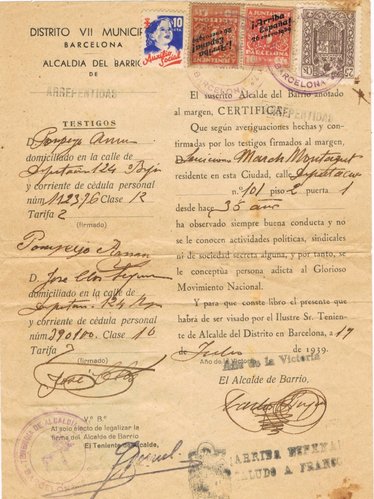 DISTRITO VII MUNICIP
BARCELONA
ALCALDIA DEL BARRIO
DE
ARREPENTIDAS
10
Auxilio Social
¡Arriba España!
26 enero 1939
¡Arriba España!
26 enero 1939
AYUNTAMIENTO
BARCELONA
TESTIGOS
D. Pompeyo
domiciliado en la calle de
Diputación 124 Bajo
y corriente de cédula personal
núm. 112376 Clase
Tarifa 2
(firmado)
Pompeyo
D. Jose Clos
domiciliado en la calle de
Diputación 124
y corriente de cédula personal
núm. 390100. Clase 10
Tarifa
(firmado)
José Clos
V.º B.º
Al solo efecto de legalizar la
firma del Alcalde de Barrio
El Teniente de Alcalde,
El suscrito Alcalde del Barrio anotado
al margen, CERTIFICA:
ARREPENTIDAS
Que según averiguaciones hechas y con-
firmadas por los testigos firmados al margen,
D. March
residente en esta Ciudad, calle Diputación
n.º 101 piso 2 puerta 1
desde hace 35 años
ha observado siempre buena conducta y no
se le conocen actividades políticas, sindicales
ni de sociedad secreta alguna, y por tanto, se
le conceptúa persona adicta al Glorioso
Movimiento Nacional.
Y para que conste libro el presente que
habrá de ser visado por el Ilustre Sr. Tenien-
te de Alcalde del Distrito en Barcelona, a 17
de Julio de 1939.
Año de la Victoria
El Alcalde de Barrio,
¡ARRIBA ESPAÑA!
SALUDO A FRANCO